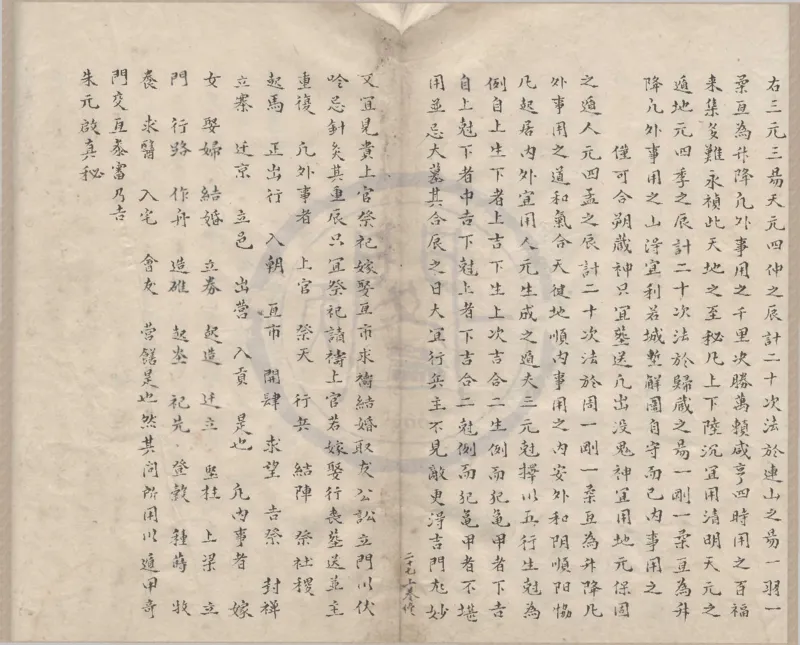 右三元三易天元四仲之辰計二十次法於連山之易一羽一
柔互為升降凡外事用之千里次勝萬頼咸亨四時用之百福
来集多難永禎此天地之至秘凡上下陸沉宜用清明天元之
遁地元四季之辰計二十次法於歸蔵之易一剛一柔互為升
降凡外事用之山淂宜利若城塹觧圍自守而已内事用之
僅可合朔蔵神只宜塟送凢出没鬼神宜用地元保固
之遁人元四孟之辰計二十次法於周一剛一柔互為升降凡
外事用之道和氣合天健地順内事用之内安外和阴順阳恊
凡起居内外宜用人元生成之遁大三元尅擇以五行生尅為
例自上生下者上吉下生上次吉合二生例而犯亀甲者下吉
自上尅下者中吉下尅上者下吉合二尅例而犯亀甲者不堪
用並忌大墓其合辰之日大宜行兵主不見敵更淂吉門尤妙
又宜見貴上官祭祀嫁娶互市求裔結婚取友公訟立門以伏
吟忌針灸其重辰只宜祭祀請禱上官若嫁娶行喪墓送並主
重復 凢外事者 上官 祭天 行兵 結陣 祭社稷
起馬 正出行 入朝 互市 開肆 求望 吉祭 封禅
立寨 迁京 立邑 出营 入貢 是也 凢内事者 嫁
女 娶婦 結婚 立券 起造 迁立 竪柱 上梁 立
門 行路 作舟 造碓 起窑 祀先 登穀 種蒔 牧
養 求醫 入宅 會友 营饍是也然其间所用以遁甲奇
門交互参審乃吉
朱元啟真秘